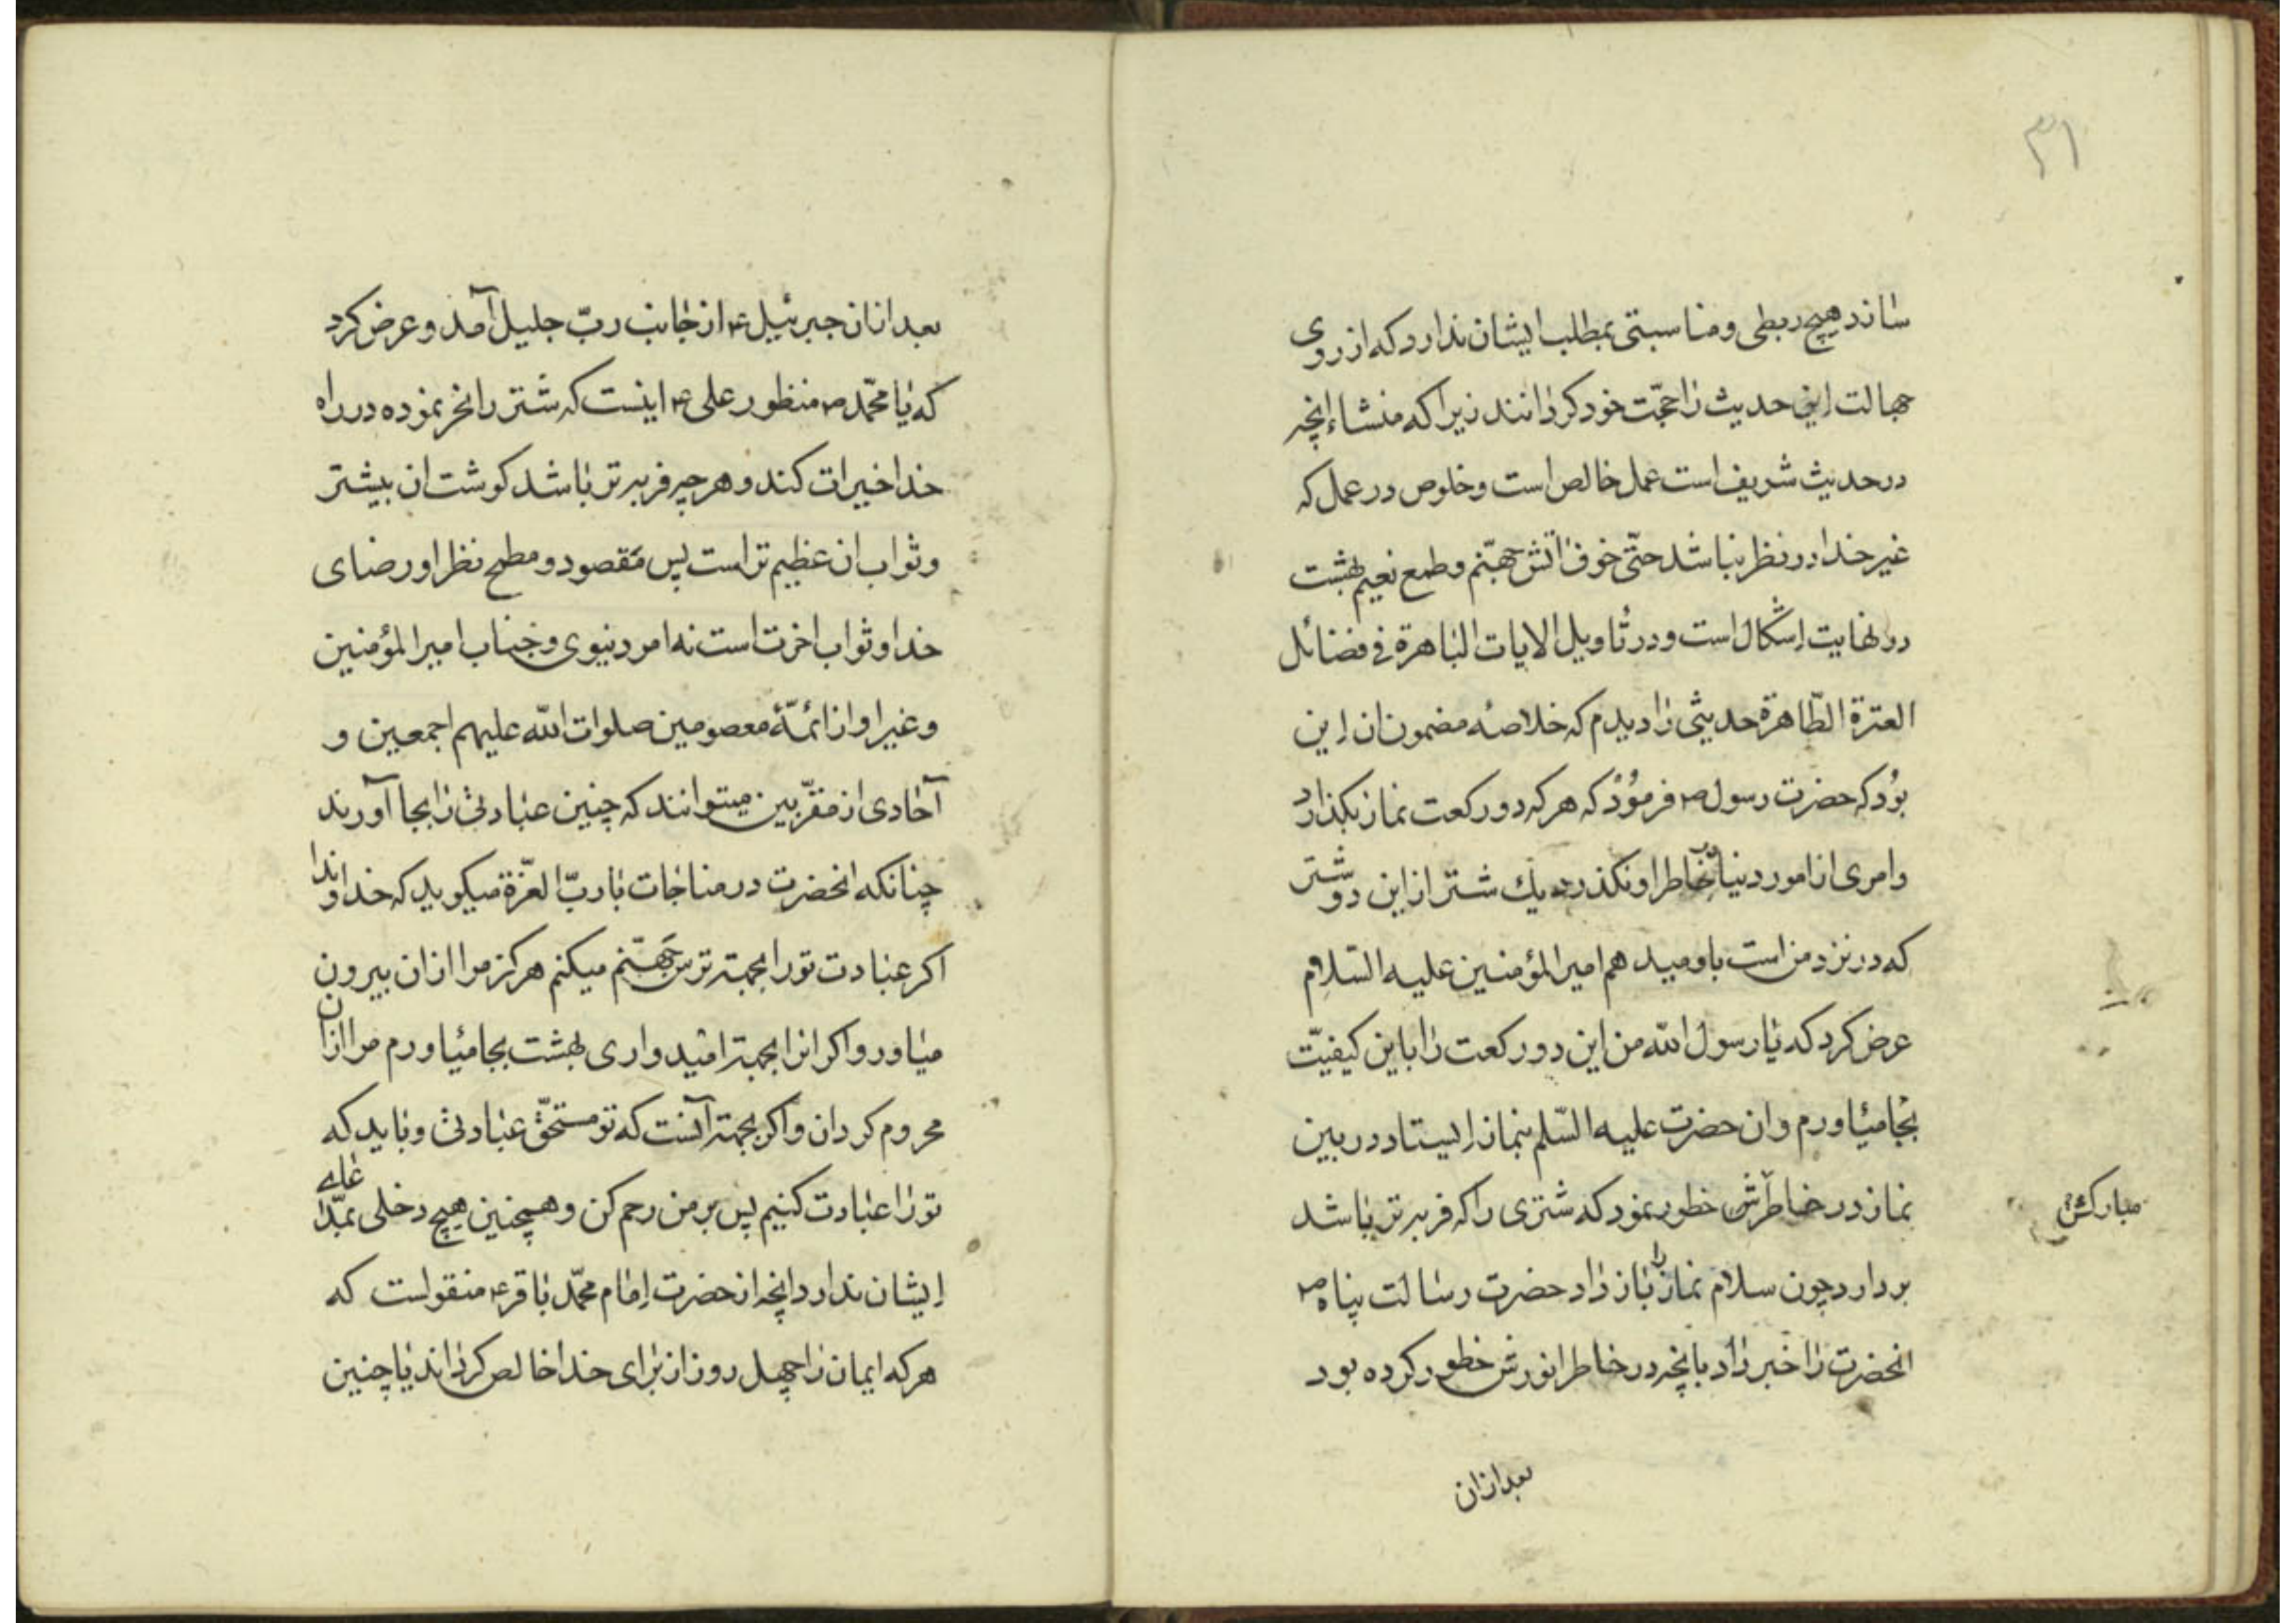 ۳۱
ساند هیچ ربطی و مناسبتی بمطلب ایشان ندارد که از روی
جهالت این حدیث را حجّت خود کردانند زیرا که منشاء انچه
در حدیث شریف است عمل خالص است و خلوص در عمل که
غیر خدا در نظر نباشد حتّی خوف اتش جهنّم و طمع نعیم بهشت
در نهایت اِشکال است و در تاویل الایات الباهرة فی فضائل
العترة الطّاهرة حدیثی را دیدم که خلاصه مضمون ان این
بود که حضرت رسول ص فرمود که هر که دو رکعت نماز بکذارد
و امری از امور دنیا بخاطر او نکذرد یك شتر از این دو شتر
که در نزد من است باو میدهم امیر المؤمنین علیه السّلام
عرض کرد که یا رسول اللّه من این دو رکعت را باین کیفیّت
بجا میاورم و ان حضرت علیه السّلم بنماز ایستاد در بین
نماز در خاطرش خطور نمود که شتری را که فربه تر باشد
مبارکش
بردارد چون سلام نماز را باز داد حضرت رسالت پناه ص
انحضرت را خبر داد بانچه در خاطر انورش خطور کرده بود
بعد ازان
بعد ازان جبرئیل ع از جانب ربّ جلیل آمد و عرض کرد
که یا محمّد ص منظور علی ع اینست که شتر را نحر نموده در راه
خدا خیرات کند و هر چه فربه تر باشد کوشت ان بیشتر
و ثواب ان عظیم تر است پس مقصود و مطمح نظر او رضای
خدا و ثواب اخرت است نه امر دنیوی و جناب امیر المؤمنین
و غیر او از ائمّۀ معصومین صلوات اللّه علیهم اجمعین و
آحادی از مقرّبین میتوانند که چنین عبادتی را بجا آورند
چنانکه انحضرت در مناجات با ربّ العزّة میکوید که خداوندا
اکر عبادت تو را بجهة ترس جهنّم میکنم هرکز مرا ازان بیرون
میاور و اکر انرا بجهة امیدواری بهشت بجا میاورم مرا ازان
محروم کردان و اکر بجهة آنست که تو مستحقّ عبادتی و باید که
تو را عبادت کنیم پس بر من رحم کن و همچنین هیچ دخلی بمدّعای
ایشان ندارد انچه از حضرت امام محمّد باقر ع منقولست که
هر که ایمان را چهل روز از برای خدا خالص کرداند یا چنین